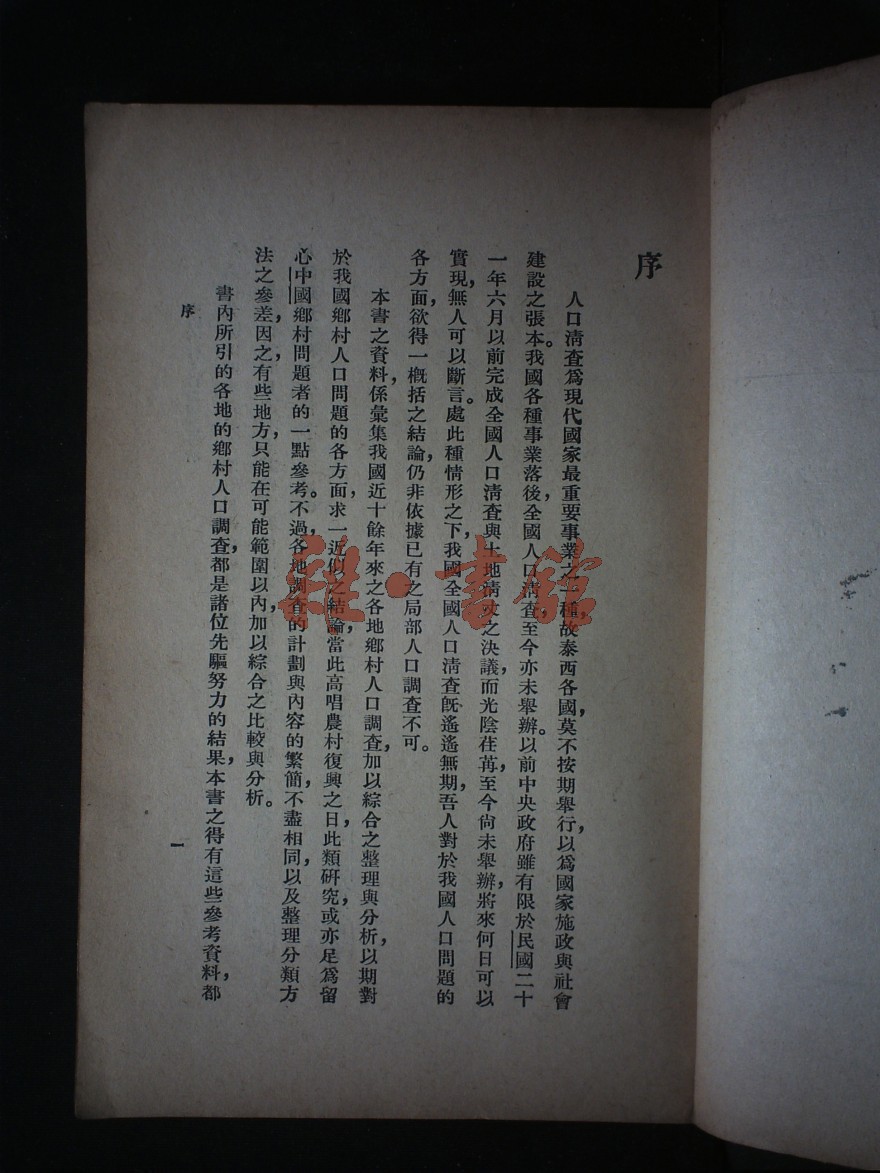 序
人口淸查爲現代國家最重要事業之一種，故泰西各國，莫不按期舉行，以爲國家施政與社會
建設之張本。我國各種事業落後，全國人口淸查，至今亦未舉辦。以前中央政府雖有限於民國二十
一年六月以前完成全國人口淸查與土地淸丈之決議，而光陰荏苒，至今尙未舉辦，將來何日可以
實現，無人可以斷言。處此種情形之下，我國全國人口淸查旣遙遙無期，吾人對於我國人口問題的
各方面，欲得一概括之結論，仍非依據已有之局部人口調查不可。
本書之資料，係彙集我國近十餘年來之各地鄉村人口調查，加以綜合之整理與分析，以期對
於我國鄉村人口問題的各方面，求一近似之結論，當此高唱農村復興之日，此類硏究，或亦足爲留
心中國鄉村問題者的一點參考。不過，各地調查的計劃與內容的繁簡，不盡相同，以及整理分類方
法之參差，因之，有些地方，只能在可能範圍以內，加以綜合之比較與分析。
書內所引的各地的鄉村人口調查，都是諸位先驅努力的結果，本書之得有這些參考資料，都
序
一
雜·書館